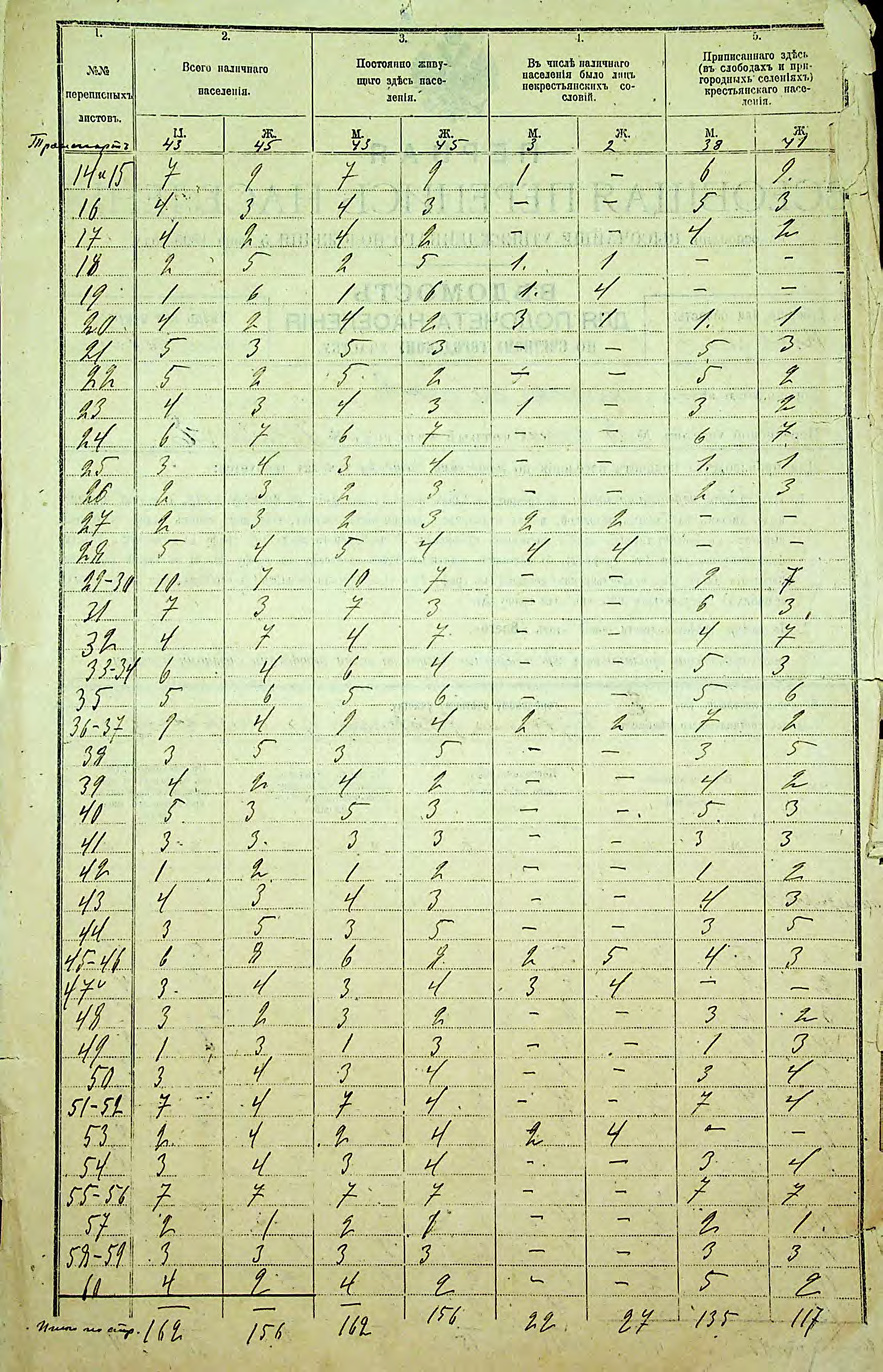 1. 2. 3. 4. 5.
№№ переписныхъ листовъ. Всего наличнаго населенія. Постоянно живущаго здѣсь населенія. Въ числѣ наличнаго населенія было лицъ некрестьянскихъ сословій. Приписаннаго здѣсь (въ слободахъ и пригородныхъ селеніяхъ) крестьянскаго населенія.
М. Ж. М. Ж. М. Ж. М. Ж.
Транспортъ 43 45 43 45 3 2 38 41
14 и 15 7 9 7 9 1 — 6 9.
16 4 3 4 3 — — 5 3
17 4 2 4 2 — — 4 2
18 2 5 2 5 1. 1 — —
19 1 6 1 6 1. 4 — —
20 4 2 4 2 3 1 1. 1
21 5 3 5 3 — — 5 3
22 5 2 5 2 — — 5 2
23 4 3 4 3 1 — 3 2
24 6 7 6 7 — — 6 7.
25 3 4 3 4 — — 1. 1
26 2 3 2 3 — — 2 3
27 2 3 2 3 2 2 — —
28 5 4 5 4 4 4 — —
29-30 10 7 10 7 — — 9 7
31 7 3 7 3 — — 6 3
32 4 7 4 7 — — 4 7
33-34 6 4 6 4 — — 5 3
35 5 6 5 6 — — 5 6
36-37 9 4 9 4 2 2 7 2
38 3 5 3 5 — — 3 5
39 4 2 4 2 — — 4 2
40 5 3 5 3 — — 5 3
41 3 3 3 3 — — 3 3
42 1 2 1 2 — — 1 2
43 4 3 4 3 — — 4 3
44 3 5 3 5 — — 3 5
45-46 6 8 6 8 2 5 4 3
47 3 4 3 4 3 4 — —
48 3 2 3 2 — — 3 2
49 1 3 1 3 — — 1 3
50 3 4 3 4 — — 3 4
51-52 7 4 7 4 — — 7 4
53 2 4 2 4 2 4 — —
54 3 4 3 4 — — 3 4
55-56 7 7 7 7 — — 7 7
57 2 1 2 1 — — 2 1
58-59 3 3 3 3 — — 3 3
60 4 2 4 2 — — 5 2
Итого по стр. 162 156 162 156 22 27 135 117